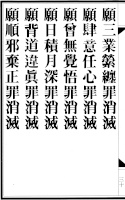 願三業縈纏罪消滅
願肆意任心罪消滅
願曾無覺悟罪消滅
願日積月深罪消滅
願背道違眞罪消滅
願順邪棄正罪消滅